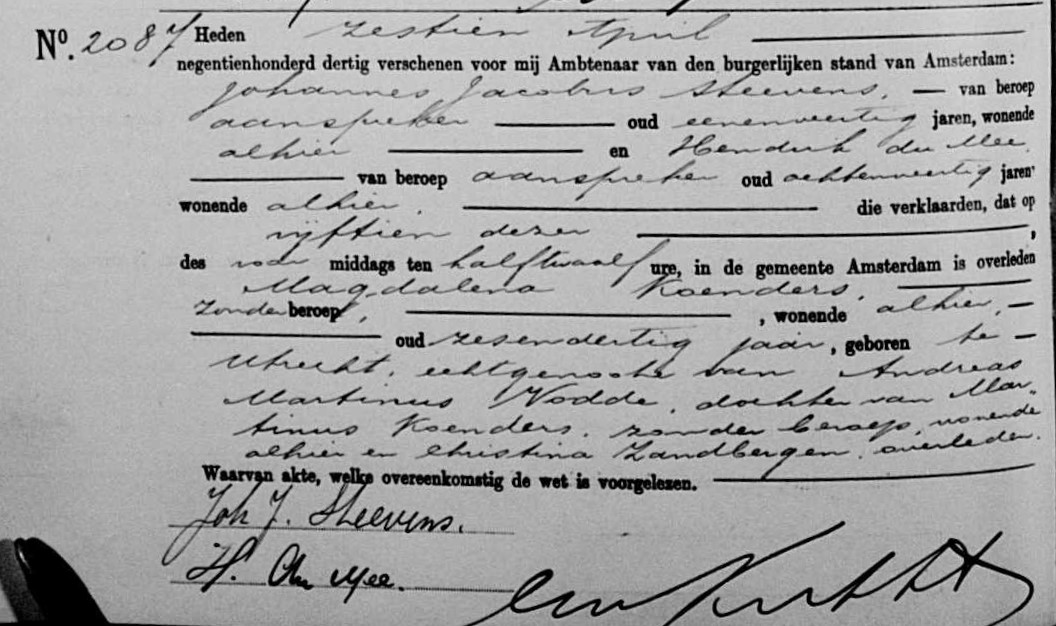 Nº. 2087 Heden zestien April
negentienhonderd dertig verschenen voor mij Ambtenaar van den burgerlijken stand van Amsterdam:
Johannes Jacobus Steevens, — van beroep
aanspreker — oud eenenveertig jaren, wonende
alhier — en Hendrik du Mee,
— van beroep aanspreker oud achtenveertig jaren
wonende alhier, — die verklaarden, dat op
vijftien dezer —,
des voor middags ten halftwaalf ure, in de gemeente Amsterdam is overleden
Magdalena Koenders, —
zonder beroep, —, wonende alhier, —
— oud zesendertig jaar, geboren te —
Utrecht, echtgenoote van Andreas
Martinus Vodde, dochter van Mar-
tinus Koenders, zonder beroep, wonende
alhier en Christina Zandbergen, overleden.
Waarvan akte, welke overeenkomstig de wet is voorgelezen. —
Joh J. Steevens.
H. du Mee.